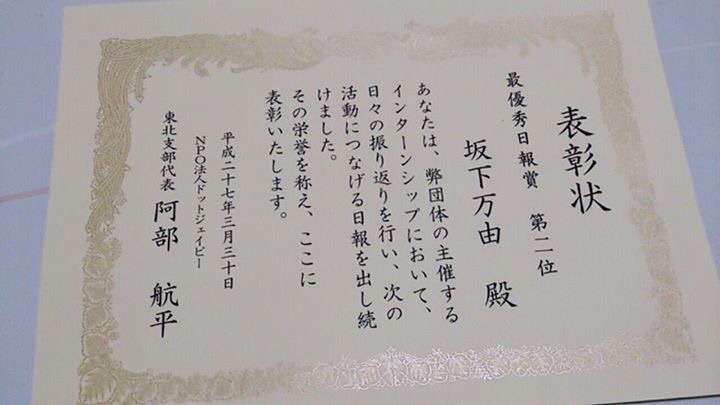 表彰状
最優秀日報賞 第二位
坂下万由 殿
あなたは、弊団体の主催する
インターンシップにおいて、
日々の振り返りを行い、次の
活動につなげる日報を出し続
けました。
その栄誉を称え、ここに
表彰いたします。
平成二十七年三月三十日
NPO法人ドットジェイピー
東北支部代表 阿部 航平